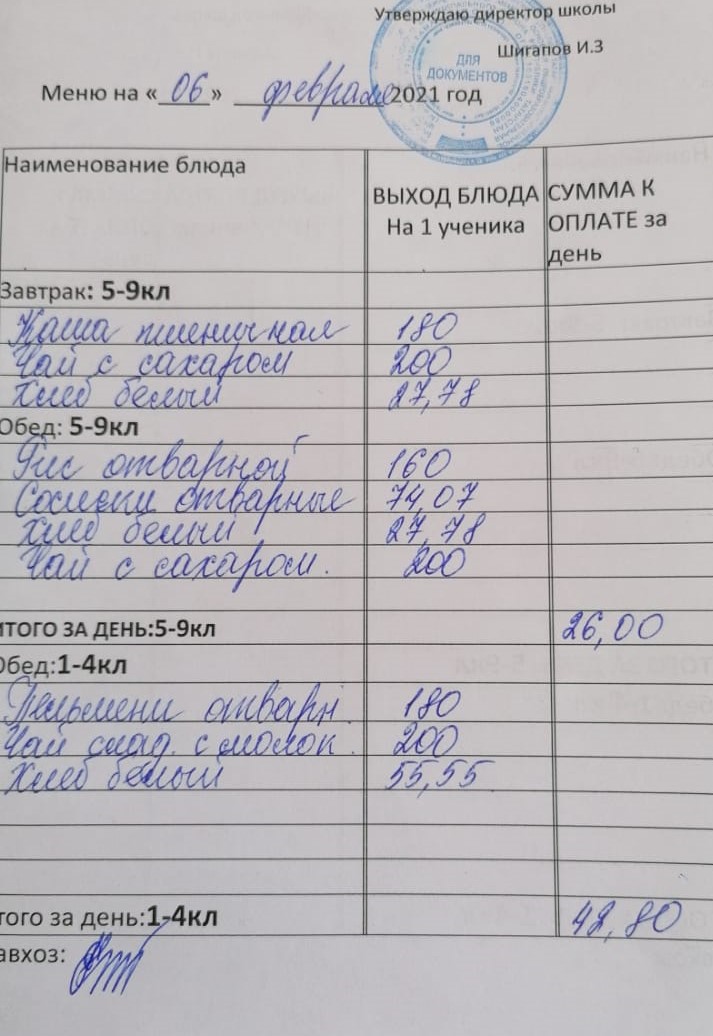 Утверждаю директор школы
Шигапов И.З
ДЛЯ
ДОКУМЕНТОВ
Меню на «06» февраля 2021 год
Наименование блюда
ВЫХОД БЛЮДА
На 1 ученика
СУММА К
ОПЛАТЕ за
день
Завтрак: 5-9кл
Каша пшеничная 180
Чай с сахаром 200
Хлеб белый 27,78
Обед: 5-9кл
Рис отварной 160
Сосиски отварные 74,07
Хлеб белый 27,78
Чай с сахаром. 200
ИТОГО ЗА ДЕНЬ:5-9кл 26,00
Обед:1-4кл
Пельмени отварн. 180
Чай слад. с молок. 200
Хлеб белый 55,55
того за день:1-4кл 48,80
авхоз: